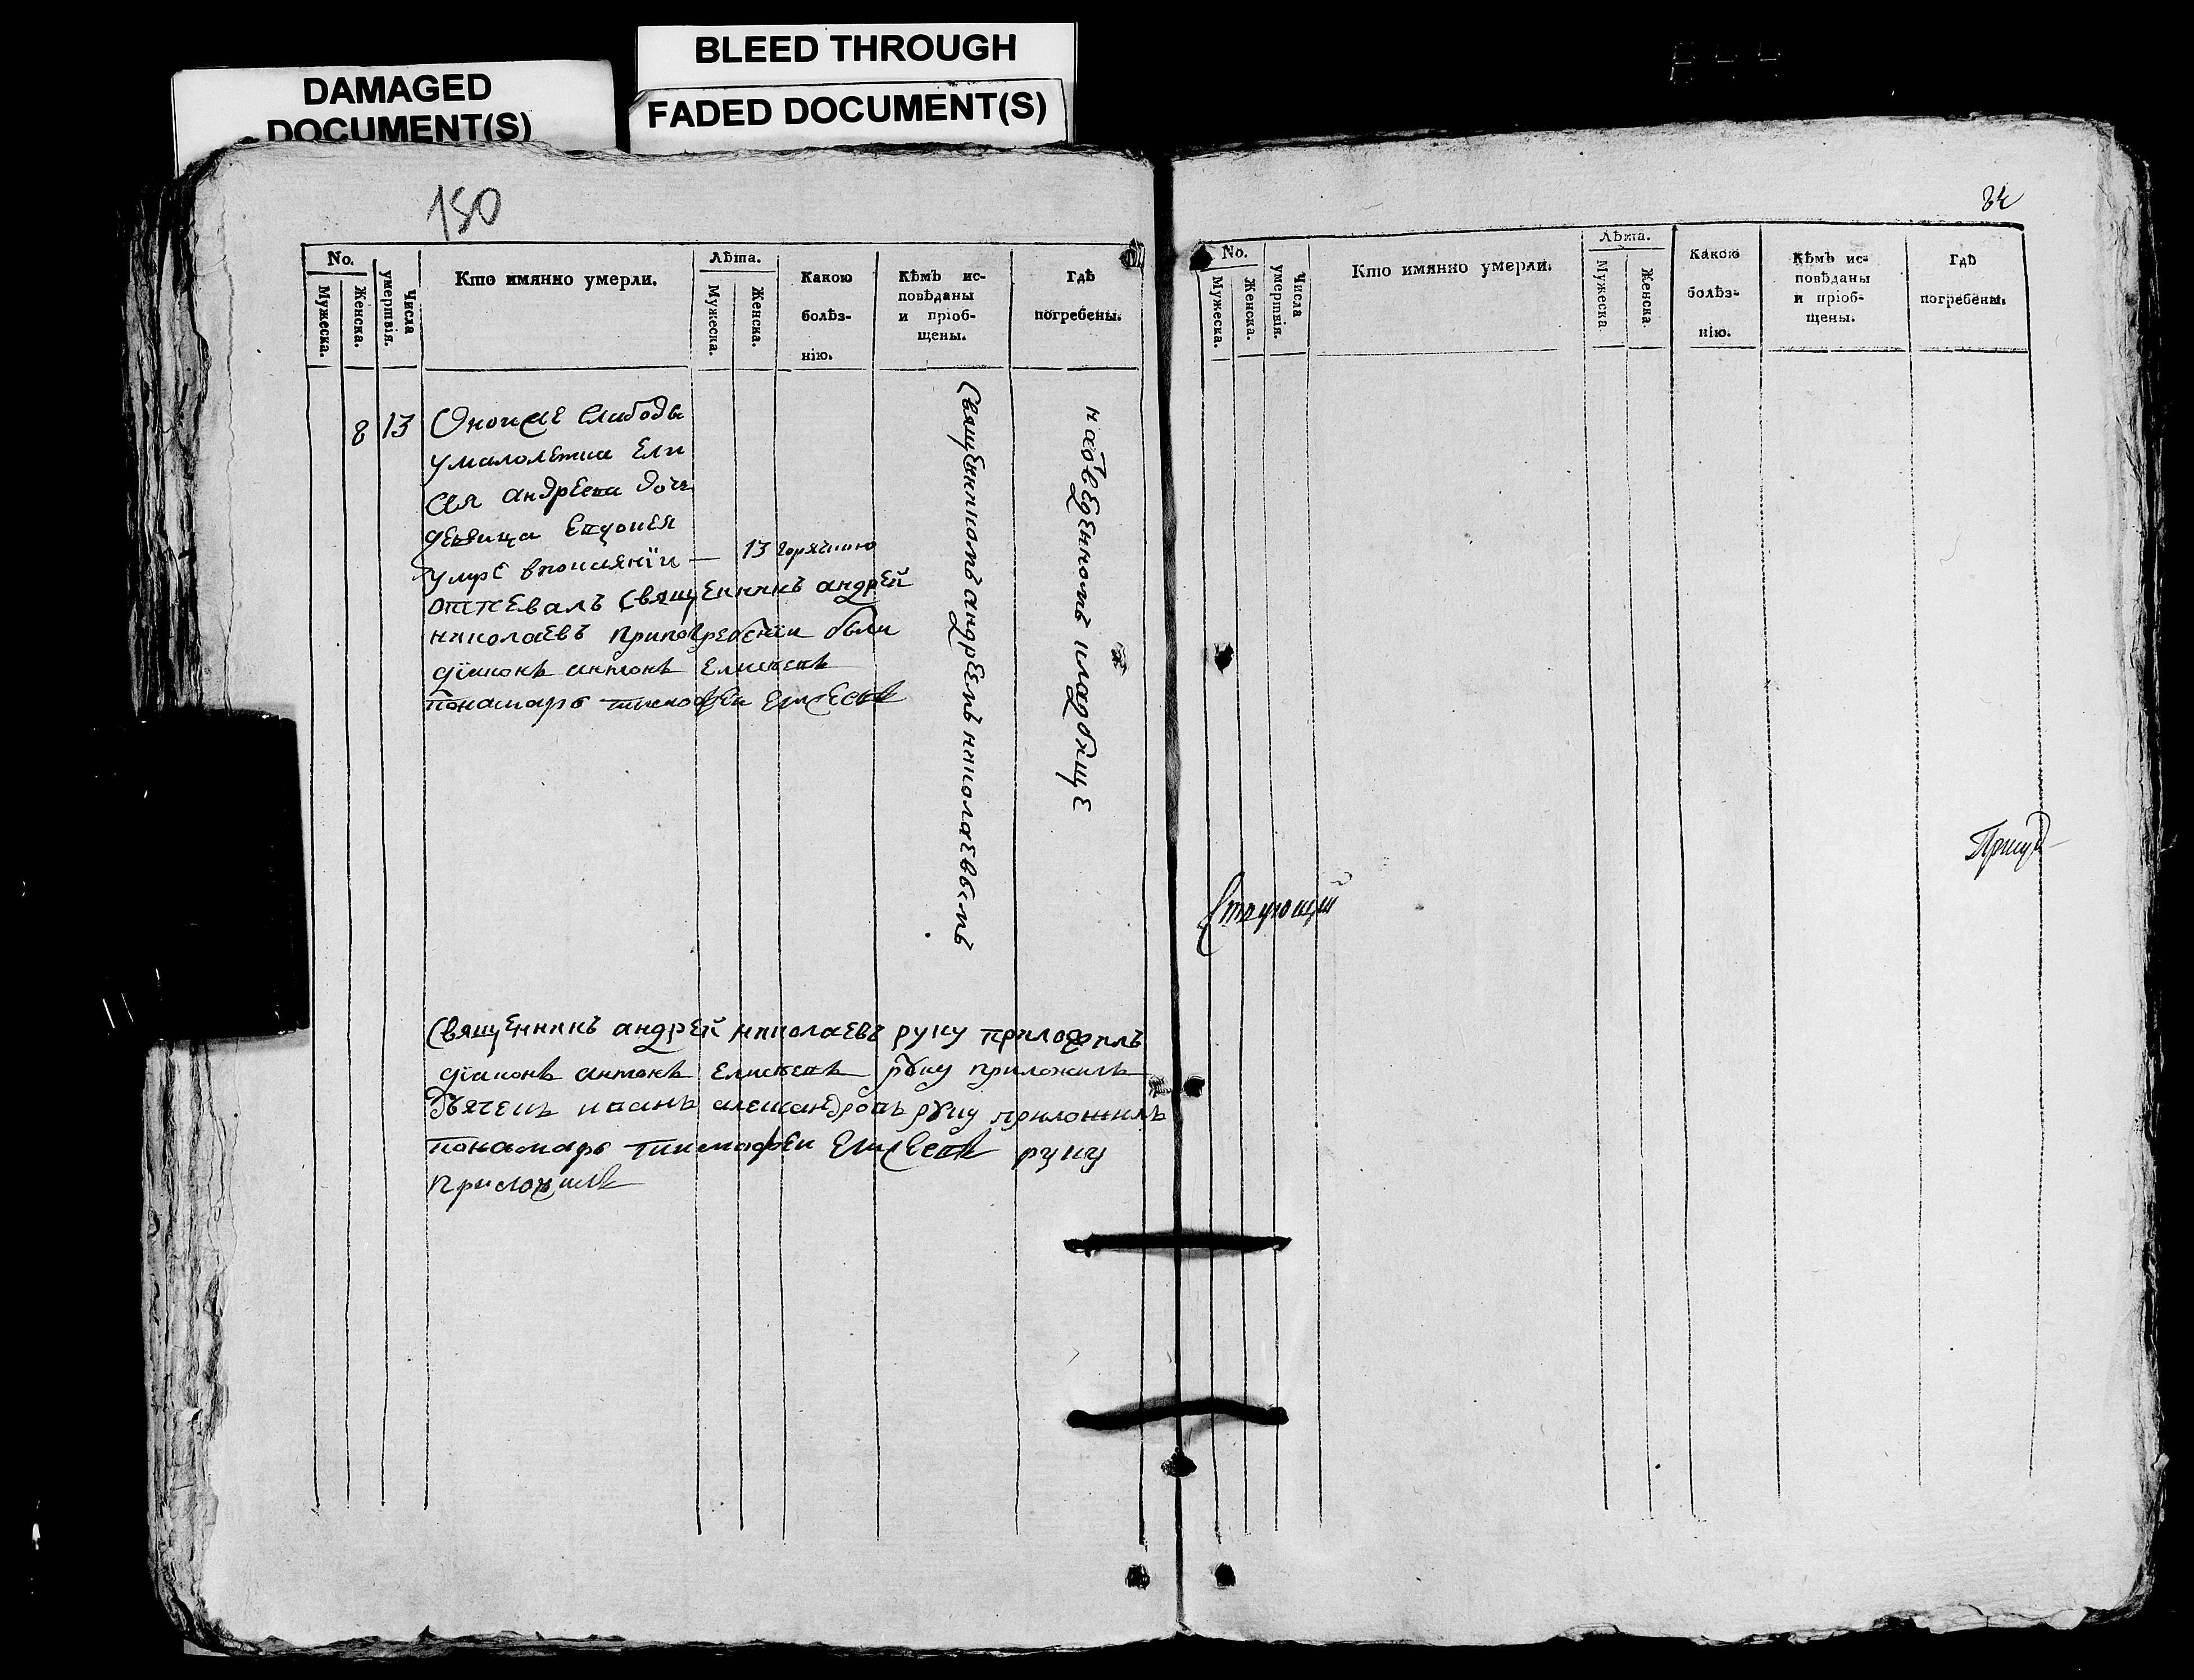 DAMAGED
DOCUMENT(S)
BLEED THROUGH
FADED DOCUMENT(S)
150
No.
Мужеска.
Женска.
Числа умертвія.
Кто имянно умерли.
Лѣта.
Мужеска.
Женска.
Какою болѣз-
нію.
Кѣмъ ис-
повѣданы
и пріоб-
щены.
Гдѣ
погребены.
8 13 Оной же слободы
умалолетна Ели
сея андреева дочь
девица
умре впокаянїи — 13 горячкою
отпевалъ священникъ андрей
николаевъ припогребенїи были
дїаконъ антонъ Елисѣевъ
понамарь тимофеи Елисеевъ
Священникомъ андреемъ николаевымъ
наотведенномъ кладбище
Священникъ андрей николаевъ руку приложилъ
дїаконъ антонъ Елисѣевъ руку приложилъ
Дьячекъ иванъ александровъ руку приложилъ
понамарь тимофеи Елисеевъ руку
приложилъ
No.
Мужеска.
Женска.
Числа умертвія.
Кто имянно умерли.
Лѣта.
Мужеска
Женска
Какою
болѣз-
нію.
Кѣмъ ис-
повѣданы
и пріоб-
щены.
Гдѣ
погребены.
Присуд
ствующий